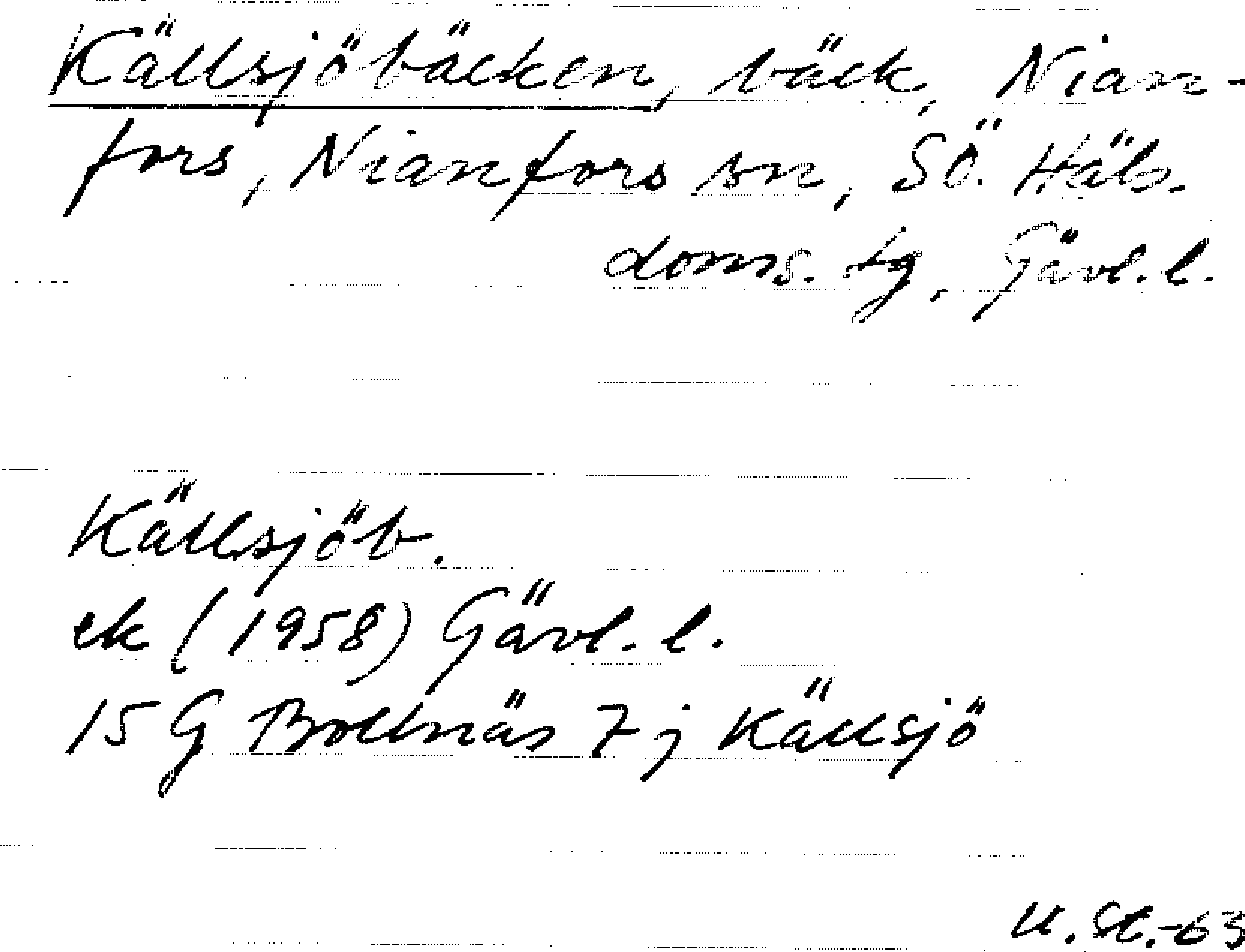 Källsjöbäcken, bäck, Nian-
fors, Nianfors sn, SÖ. Häls.
doms. tg, Gävl. l.
Källsjöb.
ek (1958) Gävl. l.
15 G Bollnäs 7 j Källsjö
U. St.-63